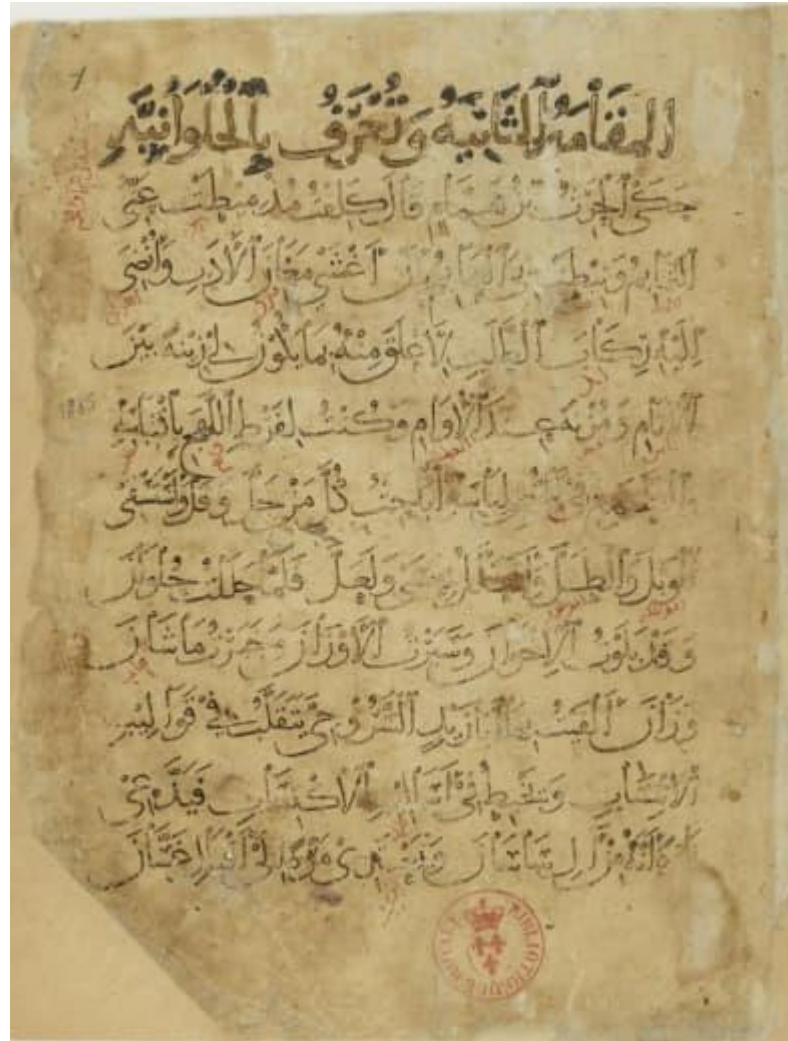 المقامة الثانية وتعرف بالحلوانية
حكى الحرث بن همام قال كلفت مذ ميطت عني
التمائم ونيطت بي العمائم بأن اغشى معان الأدب وانضي
اليه ركاب الطلب لأعلق منه بما يكون لي زينة بين
الأنام ومزنة عند الأوام وكنت لفرط اللهج باقتباسه
والطمع في لباسه أباحث كل من جل وقل وأستسقي
الوبل والطل وأتعلل بعسى ولعل فلما حللت حلوان
وقد بلوت الإخوان وسبرت الأوزان وخبرت ما شان
وزان الفيت بها أبا زيد السروجي يتقلب في قواليب
الانتساب ويخبط في أساليب الاكتساب فيدعي
أنه من آل ساسان ويعتزى مرة الى
1865
BIBLIOTHECA REGIA